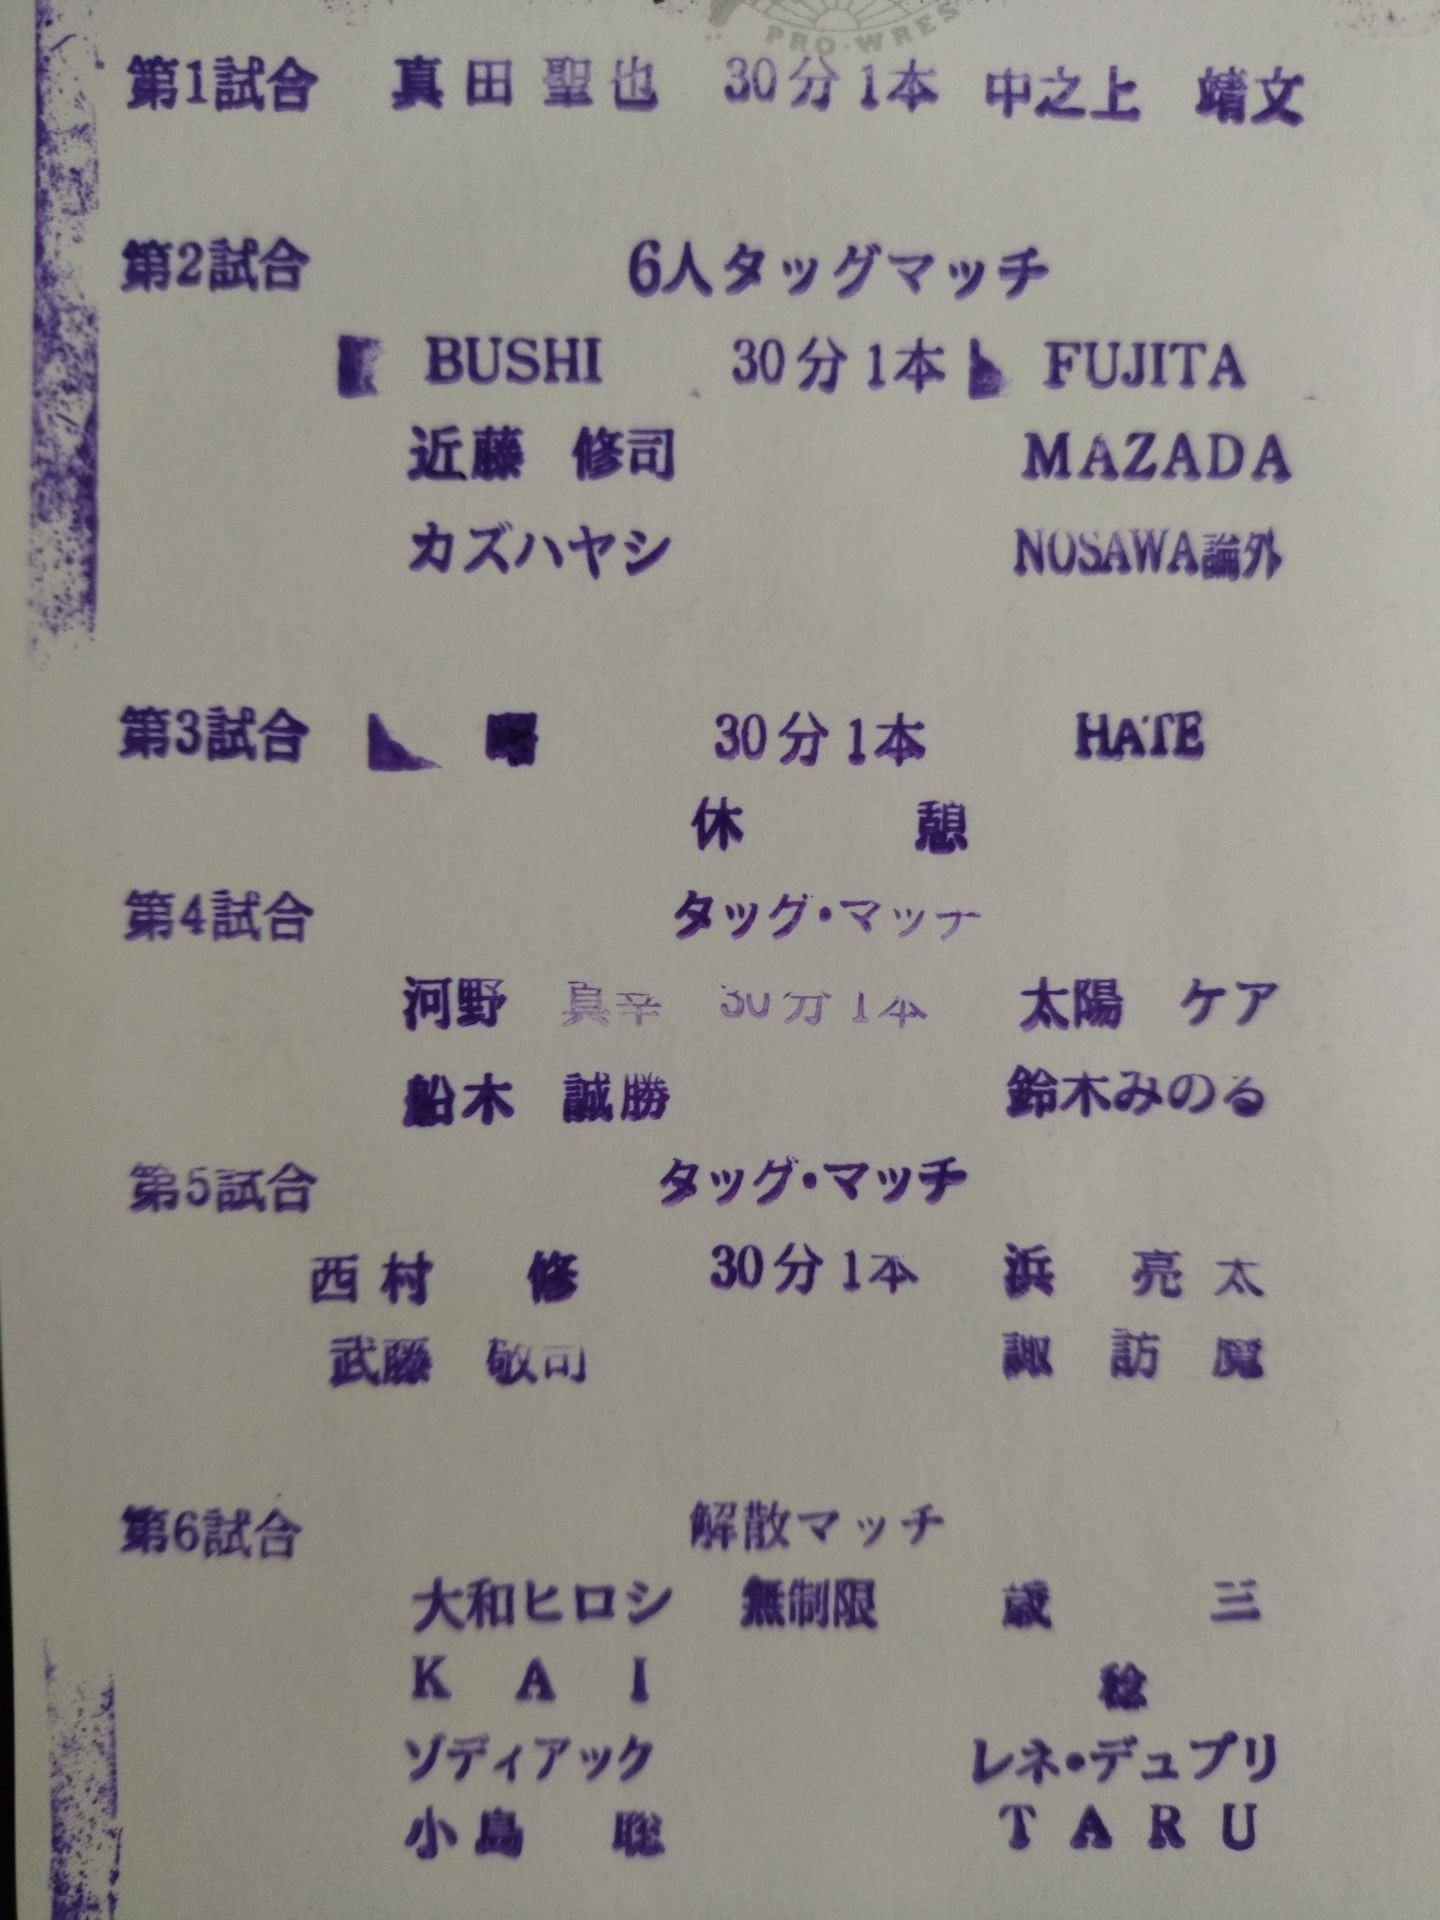 PRO-WRES
第1試合 真田聖也 30分1本 中之上 靖文
第2試合 6人タッグマッチ
BUSHI 30分1本 FUJITA
近藤 修司 MAZADA
カズハヤシ NOSAWA論外
第3試合 曙 30分1本 HATE
休憩
第4試合 タッグ・マッチ
河野 真幸 30分1本 太陽 ケア
船木 誠勝 鈴木みのる
第5試合 タッグ・マッチ
西村 修 30分1本 浜 亮太
武藤 敬司 諏訪魔
第6試合 解散マッチ
大和ヒロシ 無制限 歳三
KAI 稔
ゾディアック レネ・デュプリ
小島 聡 TARU